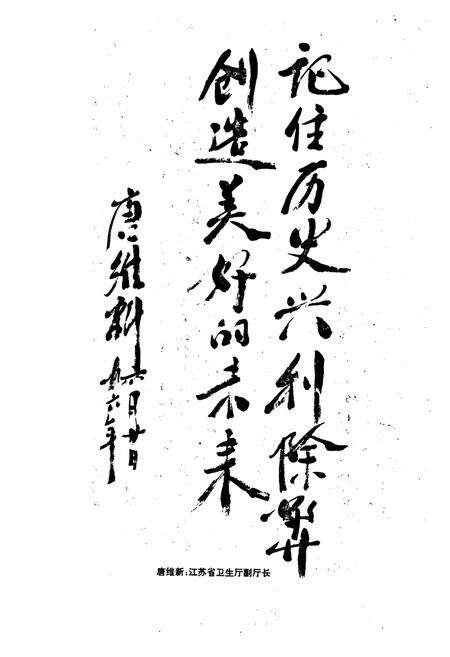 记住历史兴利除弊
创造美好的未来
唐维新
九六年
六月廿日
唐维新:江苏省卫生厅副厅长